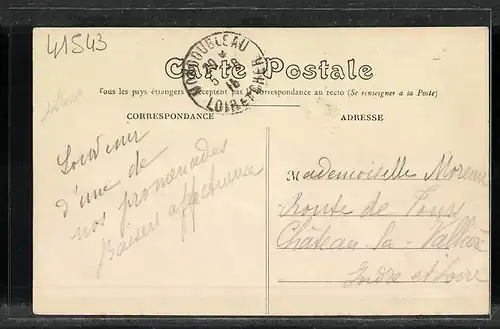 41543
MONDOUBLEAU
LOIR ET CHER
Carte Postale
Tous les pays étrangers n'acceptent pas la correspondance au recto (Se renseigner à la Poste)
CORRESPONDANCE
ADRESSE
Souvenir
d'une de
nos promenades
Baisers affectueux
Mademoiselle Moreau
Route de Tours
Château-la-Vallière
Indre et Loire